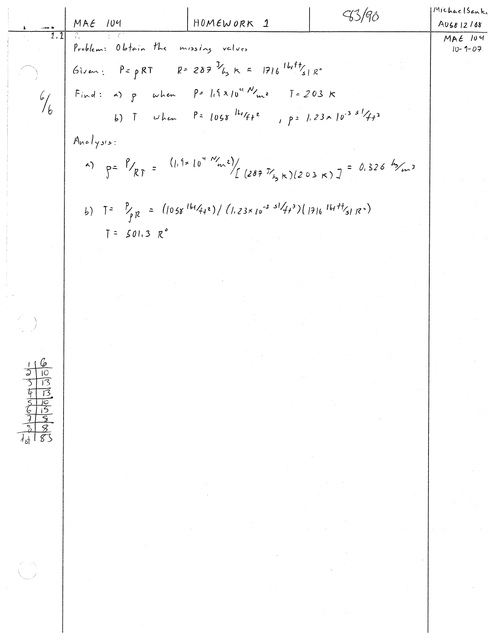 MAE 104
HOMEWORK 1
83/90
MAE 104
10-9-07
1.1
Problem: Obtain the missing values
Given: P=ρRT R= 287 J/kg K = 1716 lbf ft/sl R°
6/6
Find: a) ρ when P= 1.9×10⁴ N/m² T= 203 K
b) T when P= 1058 lbf/ft², ρ= 1.23×10⁻³ sl/ft³
Analysis:
a) ρ= P/RT = (1.9×10⁴ N/m²)/[(287 J/kg K)(203 K)] = 0.326 kg/m³
b) T= P/ρR = (1058 lbf/ft²)/(1.23×10⁻³ sl/ft³)(1716 lbf ft/sl R°)
T= 501.3 R°
1 6
2 10
3 13
4 13
5 10
6 15
7 8
8 8
Tot 83